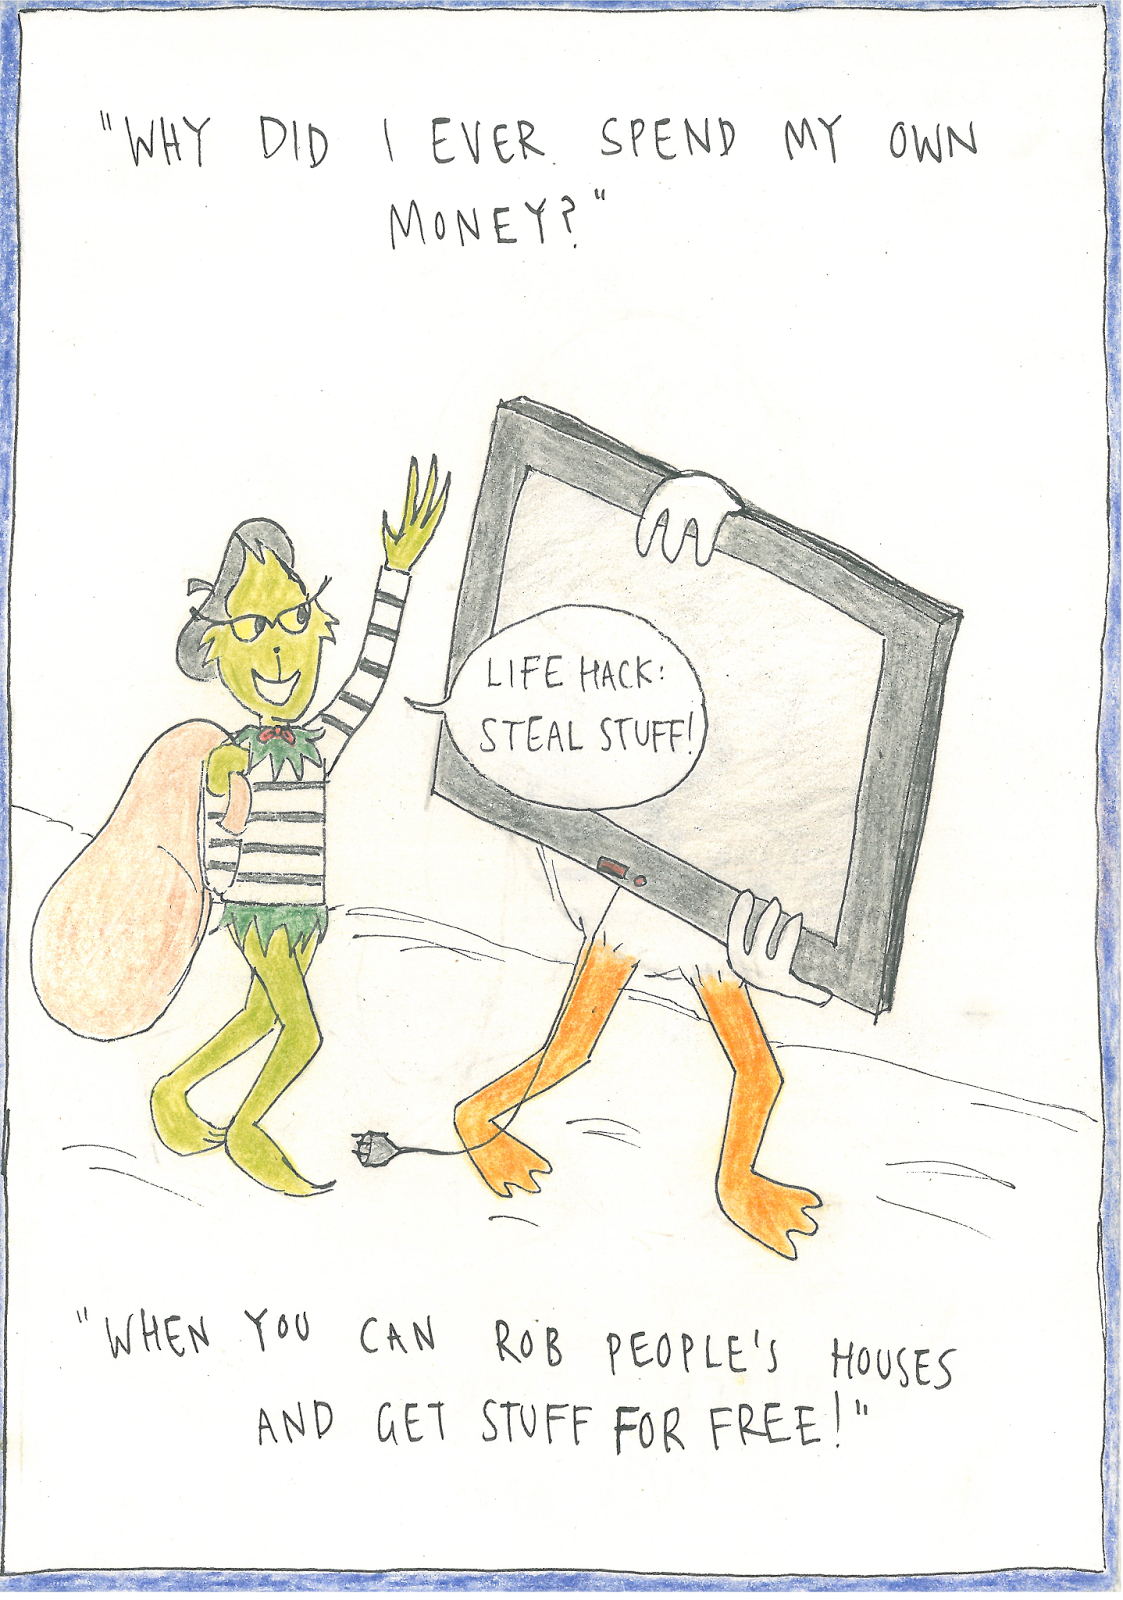 "WHY DID I EVER SPEND MY OWN
MONEY?"
LIFE HACK:
STEAL STUFF!
"WHEN YOU CAN ROB PEOPLE'S HOUSES
AND GET STUFF FOR FREE!"